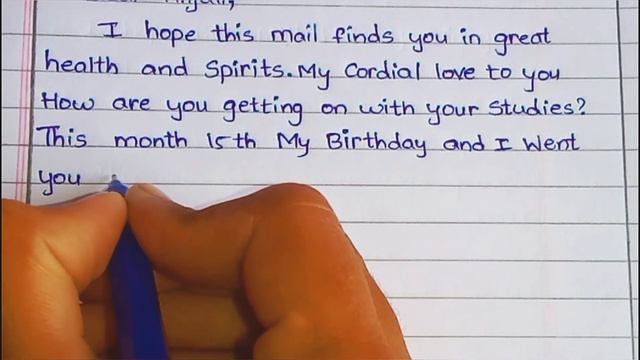 I hope this mail finds you in great
health and Spirits. My Cordial love to you
How are you getting on with your Studies?
This month 15th My Birthday and I Went
you